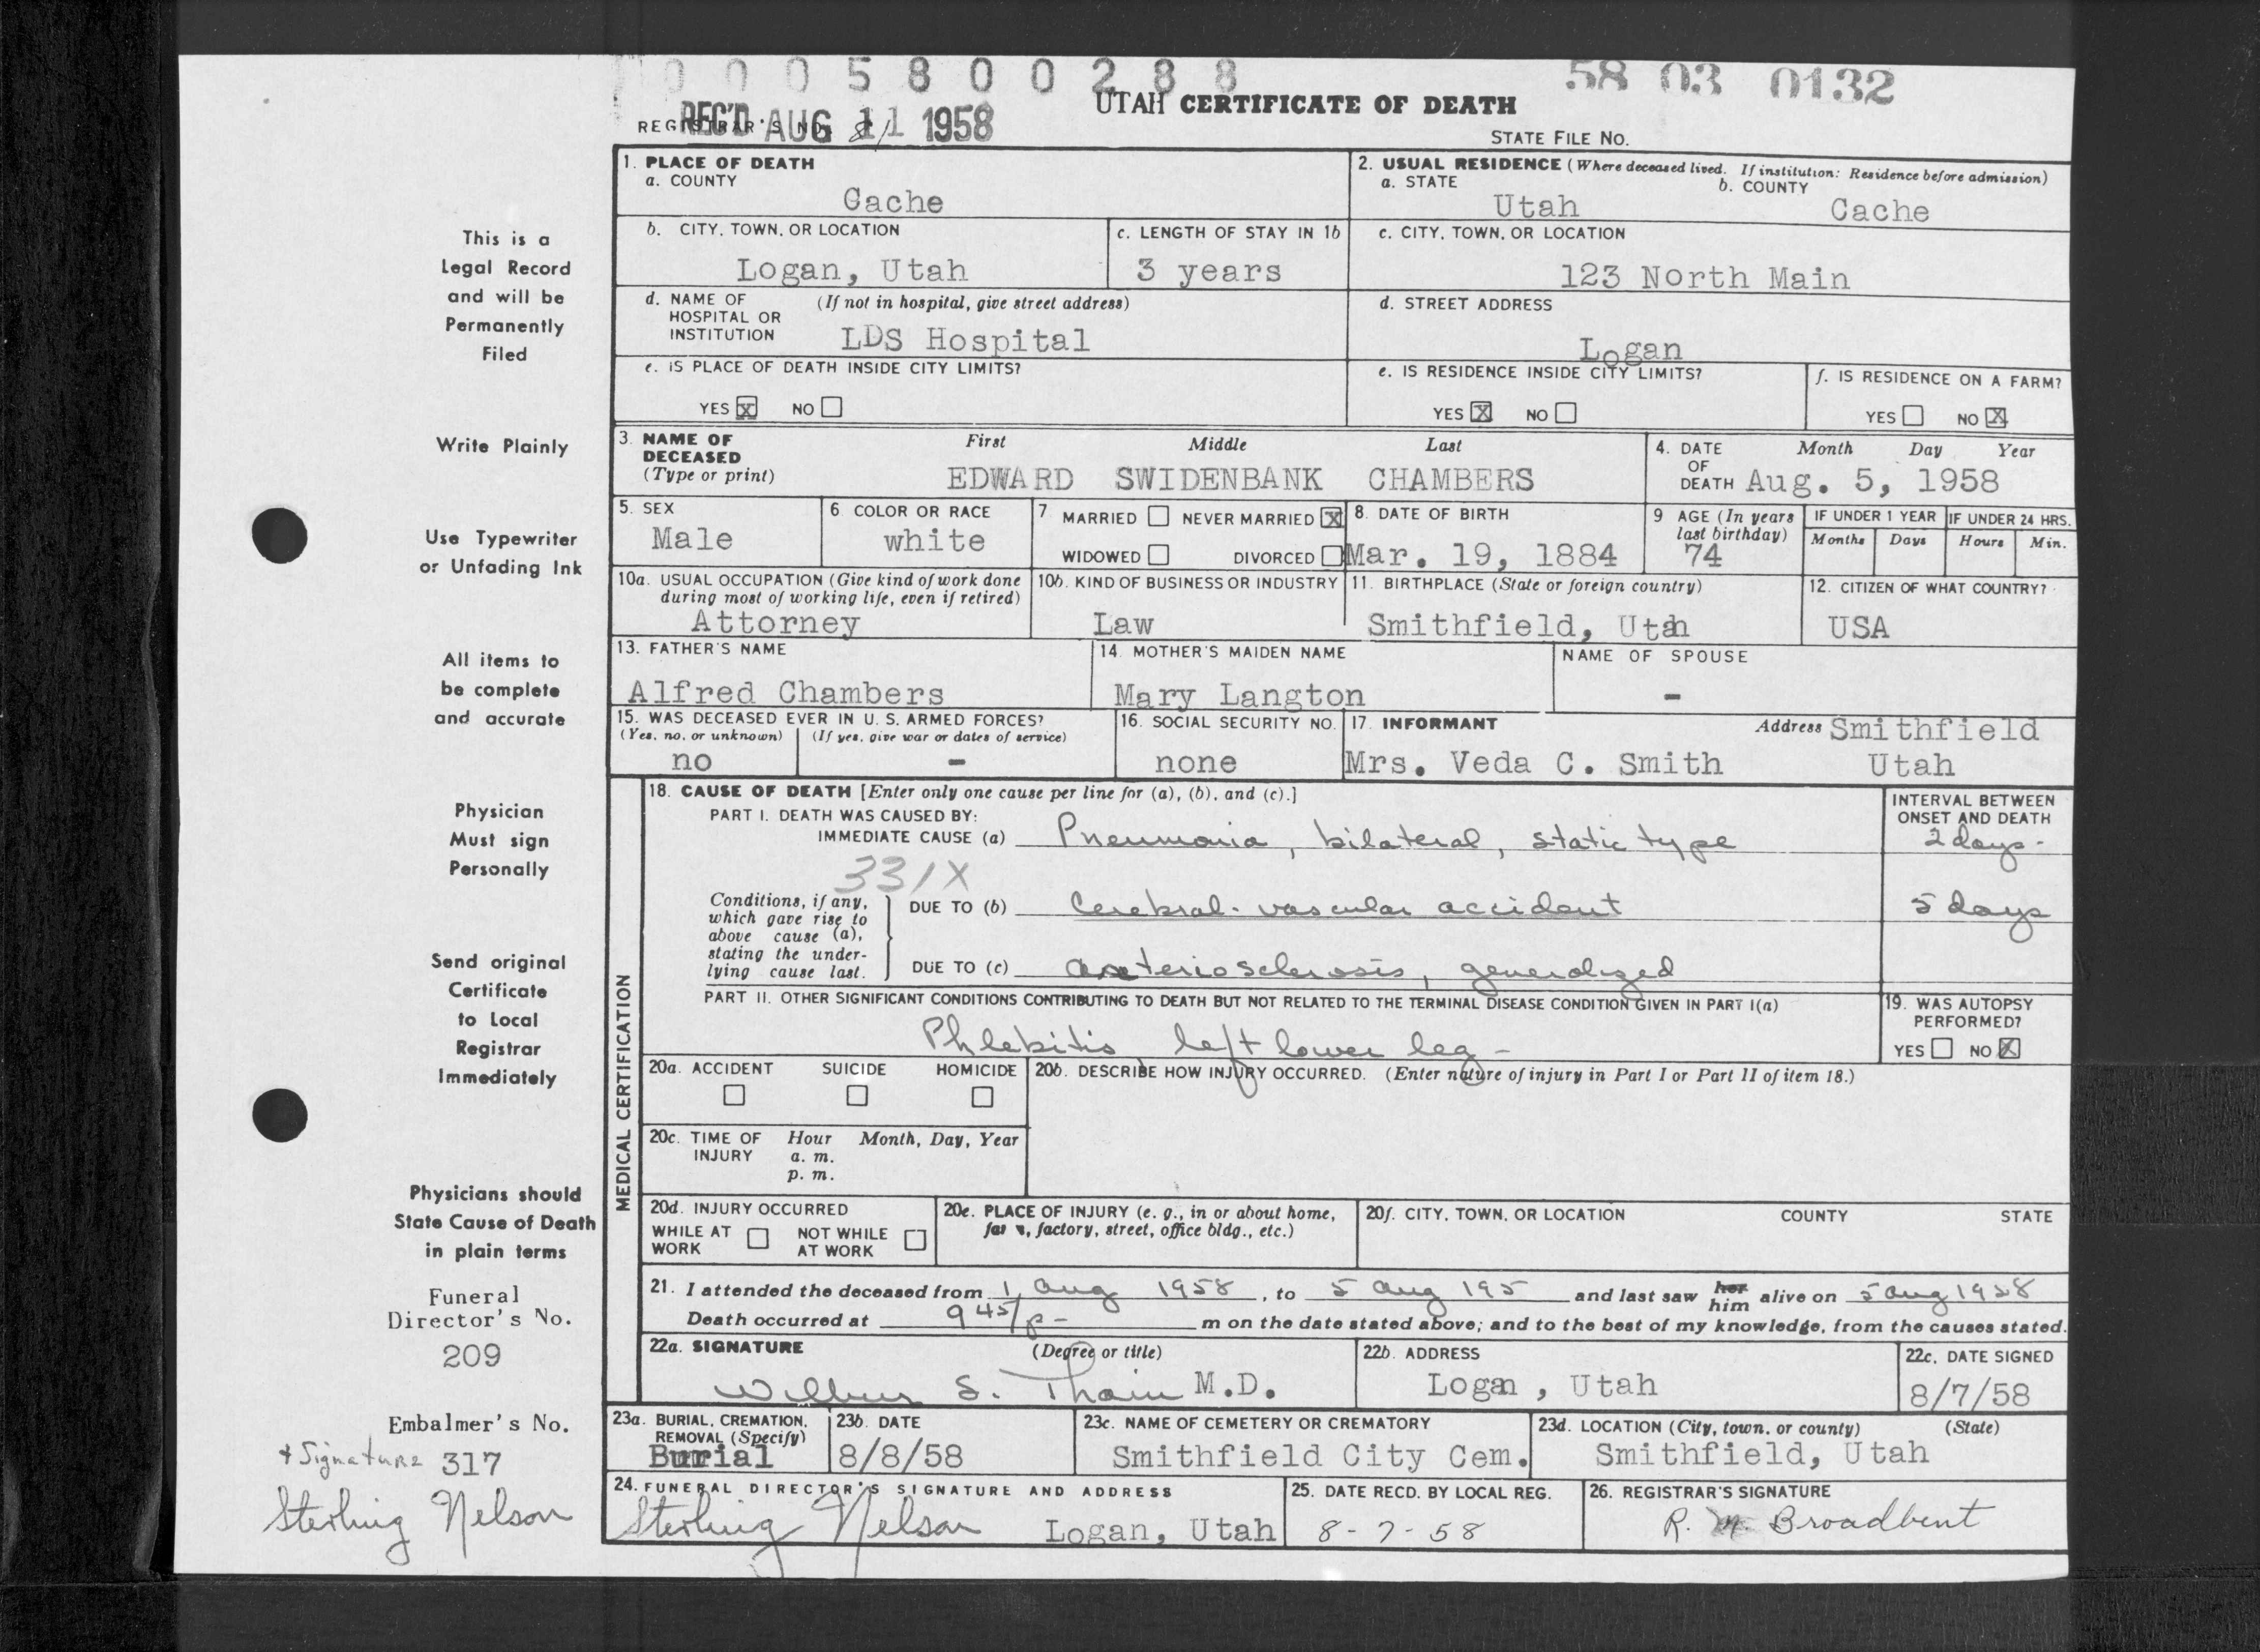 0 0 0 5 8 0 0 2 8 8
58 03 0132
UTAH CERTIFICATE OF DEATH
REGISTRAR'S NO. 81
REC'D AUG 11 1958
STATE FILE NO.
This is a
Legal Record
and will be
Permanently
Filed
Write Plainly
Use Typewriter
or Unfading Ink
All items to
be complete
and accurate
Physician
Must sign
Personally
Send original
Certificate
to Local
Registrar
Immediately
Physicians should
State Cause of Death
in plain terms
Funeral
Director's No.
209
Embalmer's No.
+ Signature 317
Sterling Nelson
1. PLACE OF DEATH
a. COUNTY
Cache
2. USUAL RESIDENCE (Where deceased lived. If institution: Residence before admission)
a. STATE
Utah
b. COUNTY
Cache
b. CITY, TOWN, OR LOCATION
Logan, Utah
c. LENGTH OF STAY IN 1b
3 years
c. CITY, TOWN, OR LOCATION
123 North Main
d. NAME OF HOSPITAL OR INSTITUTION (If not in hospital, give street address)
LDS Hospital
d. STREET ADDRESS
Logan
e. IS PLACE OF DEATH INSIDE CITY LIMITS?
YES X NO
e. IS RESIDENCE INSIDE CITY LIMITS?
YES X NO
f. IS RESIDENCE ON A FARM?
YES NO X
3. NAME OF DECEASED (Type or print)
First Middle Last
EDWARD SWIDENBANK CHAMBERS
4. DATE OF DEATH Month Day Year
Aug. 5, 1958
5. SEX
Male
6. COLOR OR RACE
white
7 MARRIED NEVER MARRIED X
WIDOWED DIVORCED
8. DATE OF BIRTH
Mar. 19, 1884
9 AGE (In years last birthday)
74
IF UNDER 1 YEAR
Months Days
IF UNDER 24 HRS.
Hours Min.
10a. USUAL OCCUPATION (Give kind of work done during most of working life, even if retired)
Attorney
10b. KIND OF BUSINESS OR INDUSTRY
Law
11. BIRTHPLACE (State or foreign country)
Smithfield, Utah
12. CITIZEN OF WHAT COUNTRY?
USA
13. FATHER'S NAME
Alfred Chambers
14. MOTHER'S MAIDEN NAME
Mary Langton
NAME OF SPOUSE
-
15. WAS DECEASED EVER IN U. S. ARMED FORCES?
(Yes, no, or unknown) (If yes, give war or dates of service)
no -
16. SOCIAL SECURITY NO.
none
17. INFORMANT
Mrs. Veda C. Smith
Address Smithfield
Utah
MEDICAL CERTIFICATION
18. CAUSE OF DEATH [Enter only one cause per line for (a), (b), and (c).]
INTERVAL BETWEEN ONSET AND DEATH
PART I. DEATH WAS CAUSED BY:
IMMEDIATE CAUSE (a) Pneumonia, bilateral, static type 2 days -
331X
Conditions, if any, which gave rise to above cause (a), stating the underlying cause last.
DUE TO (b) Cerebral-vascular accident 5 days
DUE TO (c) arteriosclerosis, generalized
PART II. OTHER SIGNIFICANT CONDITIONS CONTRIBUTING TO DEATH BUT NOT RELATED TO THE TERMINAL DISEASE CONDITION GIVEN IN PART I(a)
Phlebitis, left lower leg -
19. WAS AUTOPSY PERFORMED?
YES NO X
20a. ACCIDENT SUICIDE HOMICIDE
20b. DESCRIBE HOW INJURY OCCURRED. (Enter nature of injury in Part I or Part II of item 18.)
20c. TIME OF INJURY Hour Month, Day, Year
a. m.
p. m.
20d. INJURY OCCURRED
WHILE AT WORK NOT WHILE AT WORK
20e. PLACE OF INJURY (e. g., in or about home, farm, factory, street, office bldg., etc.)
20f. CITY, TOWN, OR LOCATION COUNTY STATE
21. I attended the deceased from 1, Aug 1958, to 5 Aug 195 and last saw her him alive on 5 Aug 1958
Death occurred at 9 45/p- m on the date stated above; and to the best of my knowledge, from the causes stated.
22a. SIGNATURE (Degree or title)
Wilbur S. Thain M.D.
22b. ADDRESS
Logan, Utah
22c. DATE SIGNED
8/7/58
23a. BURIAL, CREMATION, REMOVAL (Specify)
Burial
23b. DATE
8/8/58
23c. NAME OF CEMETERY OR CREMATORY
Smithfield City Cem.
23d. LOCATION (City, town, or county) (State)
Smithfield, Utah
24. FUNERAL DIRECTOR'S SIGNATURE AND ADDRESS
Sterling Nelson Logan, Utah
25. DATE RECD. BY LOCAL REG.
8-7-58
26. REGISTRAR'S SIGNATURE
R. M. Broadbent